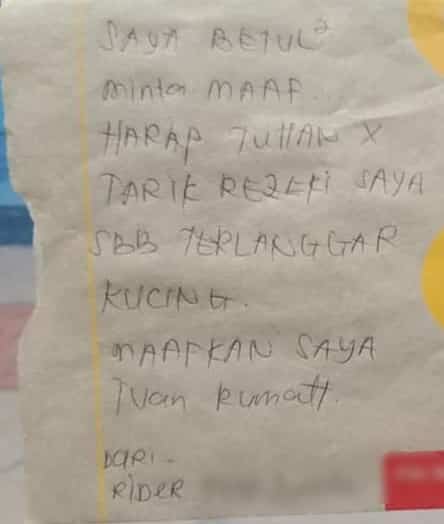 SAYA BETUL²
minta MAAF..
HARAP TUHAN X
TARIK REZEKI SAYA
SBB TERLANGGAR
KUCING.
MAAFKAN SAYA
Tuan Rumah.
DARI -
RIDER